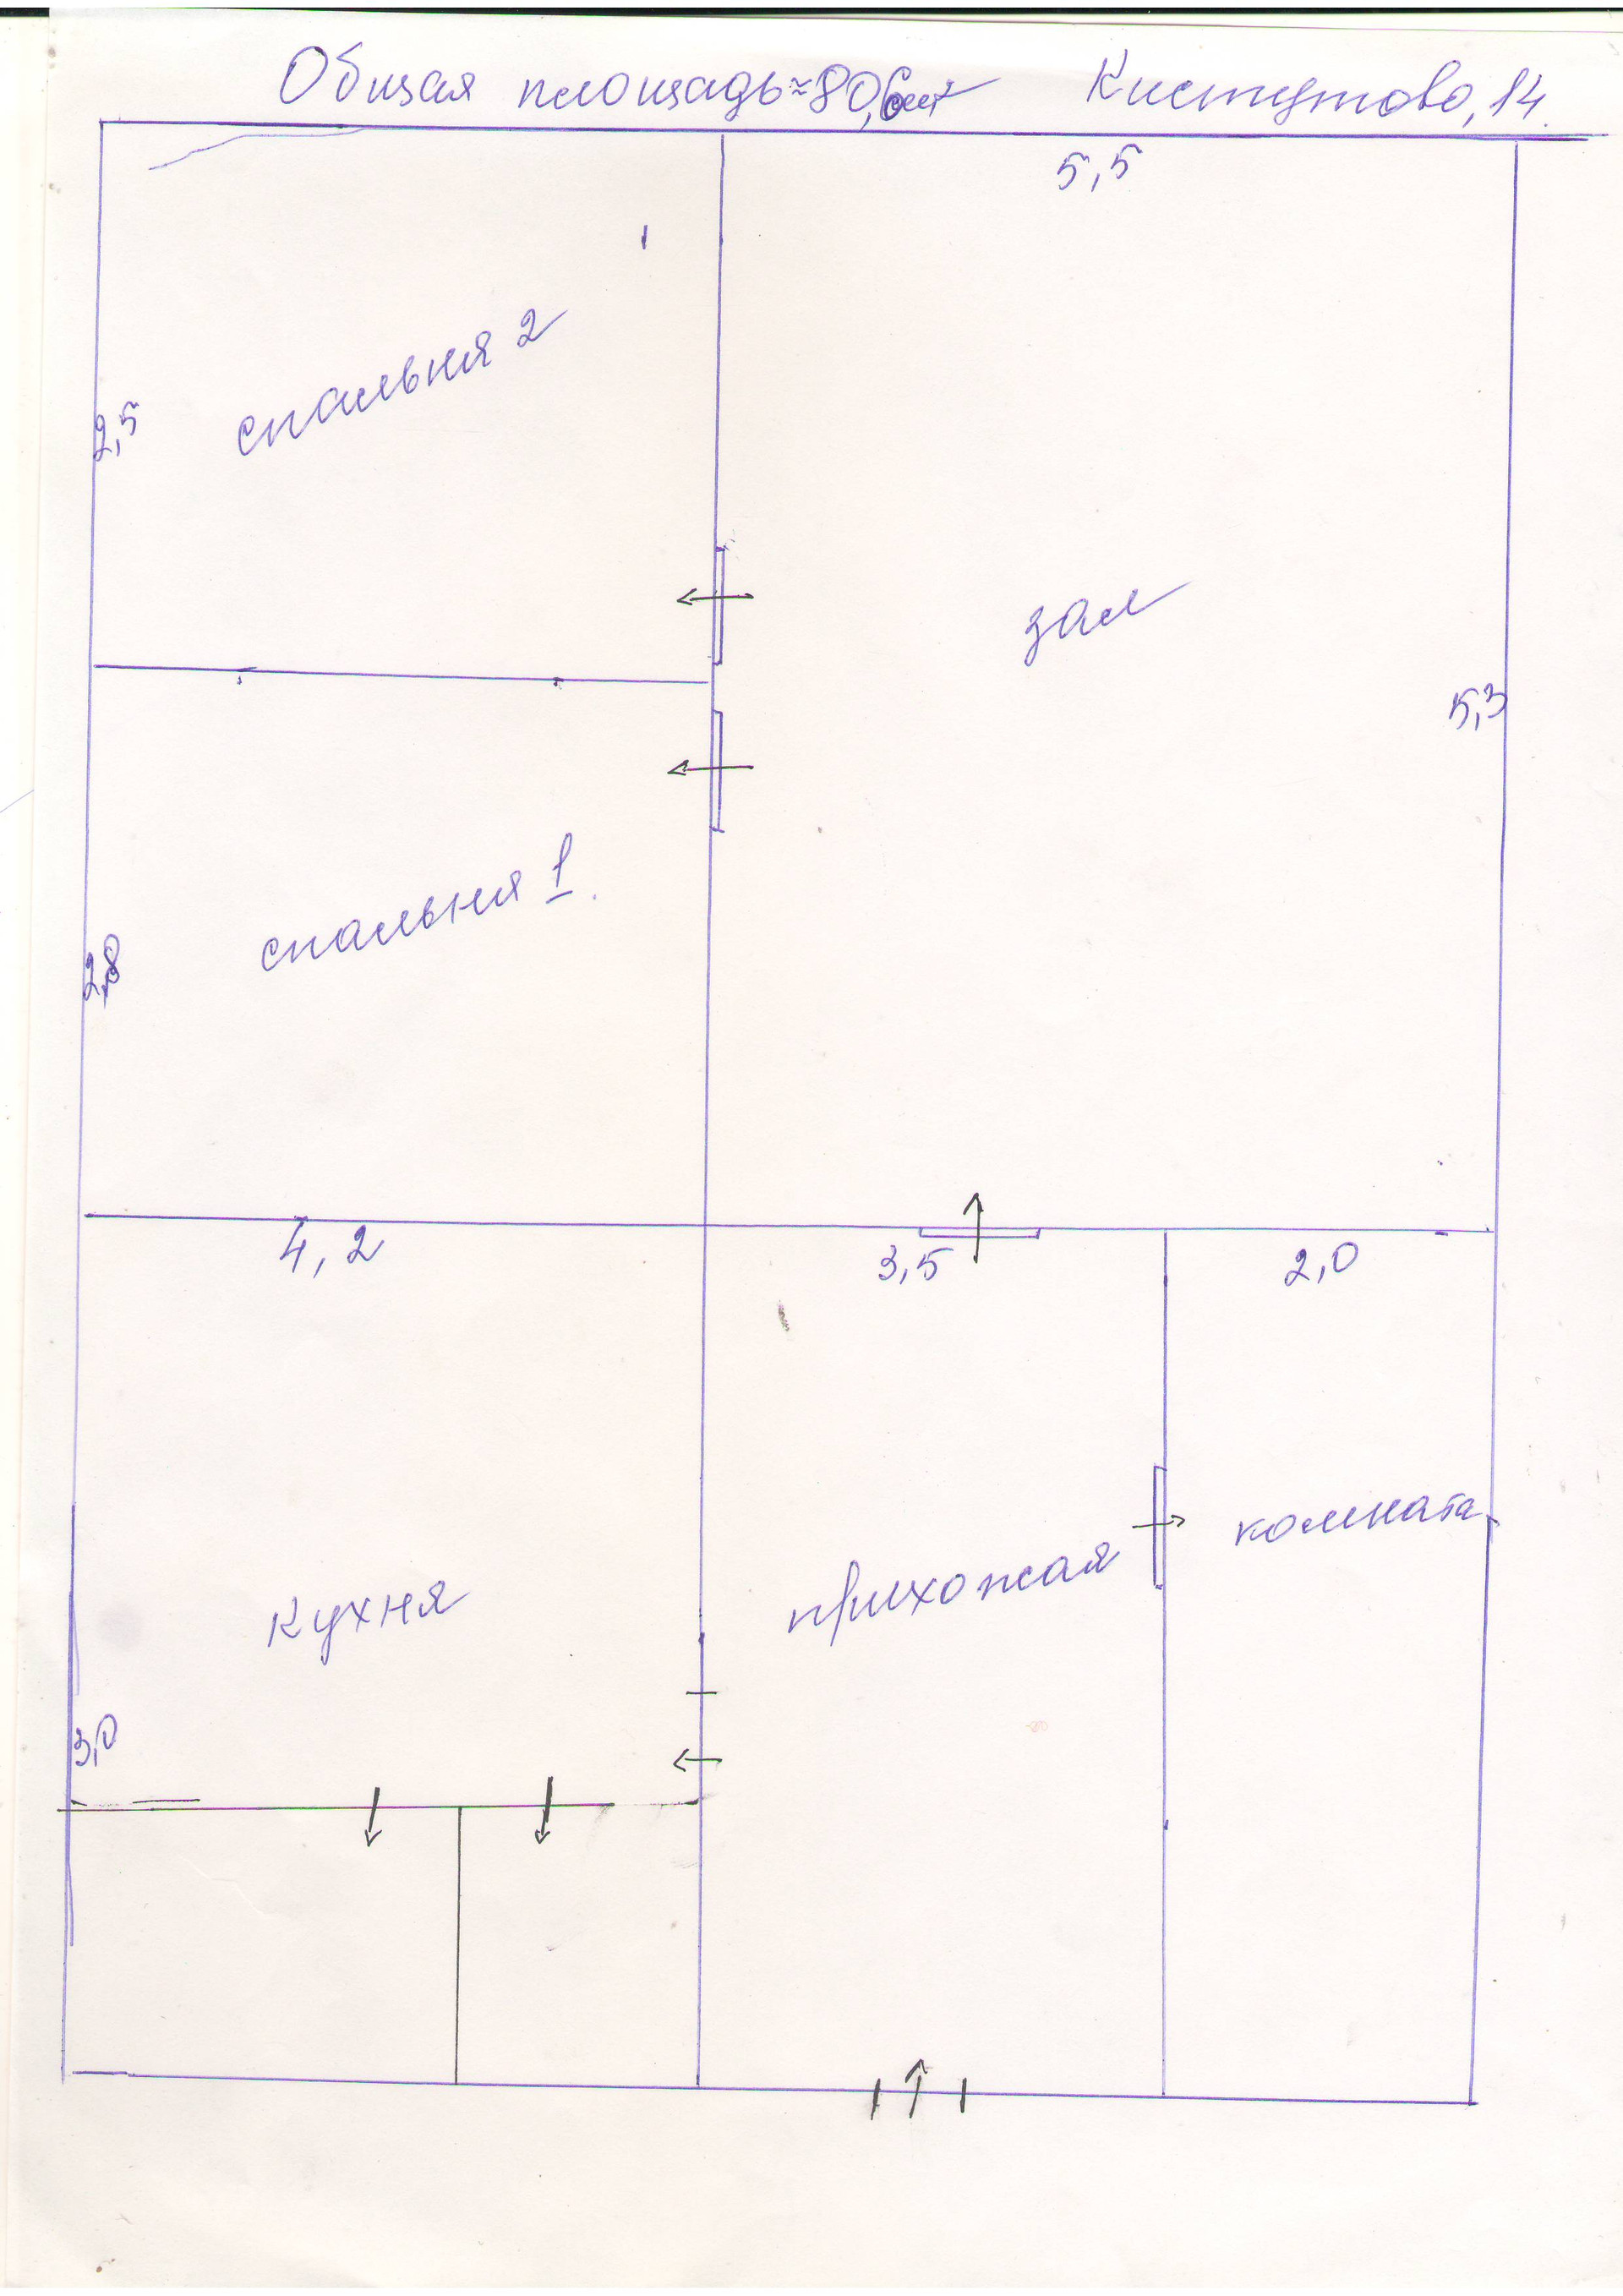 Общая площадь≈80,6 м² Кистутово, 14.
5,5
спальня 2
2,5
зал
5,3
спальня 1.
2,8
4,2
3,5
2,0
комната
прихожая
кухня
3,0